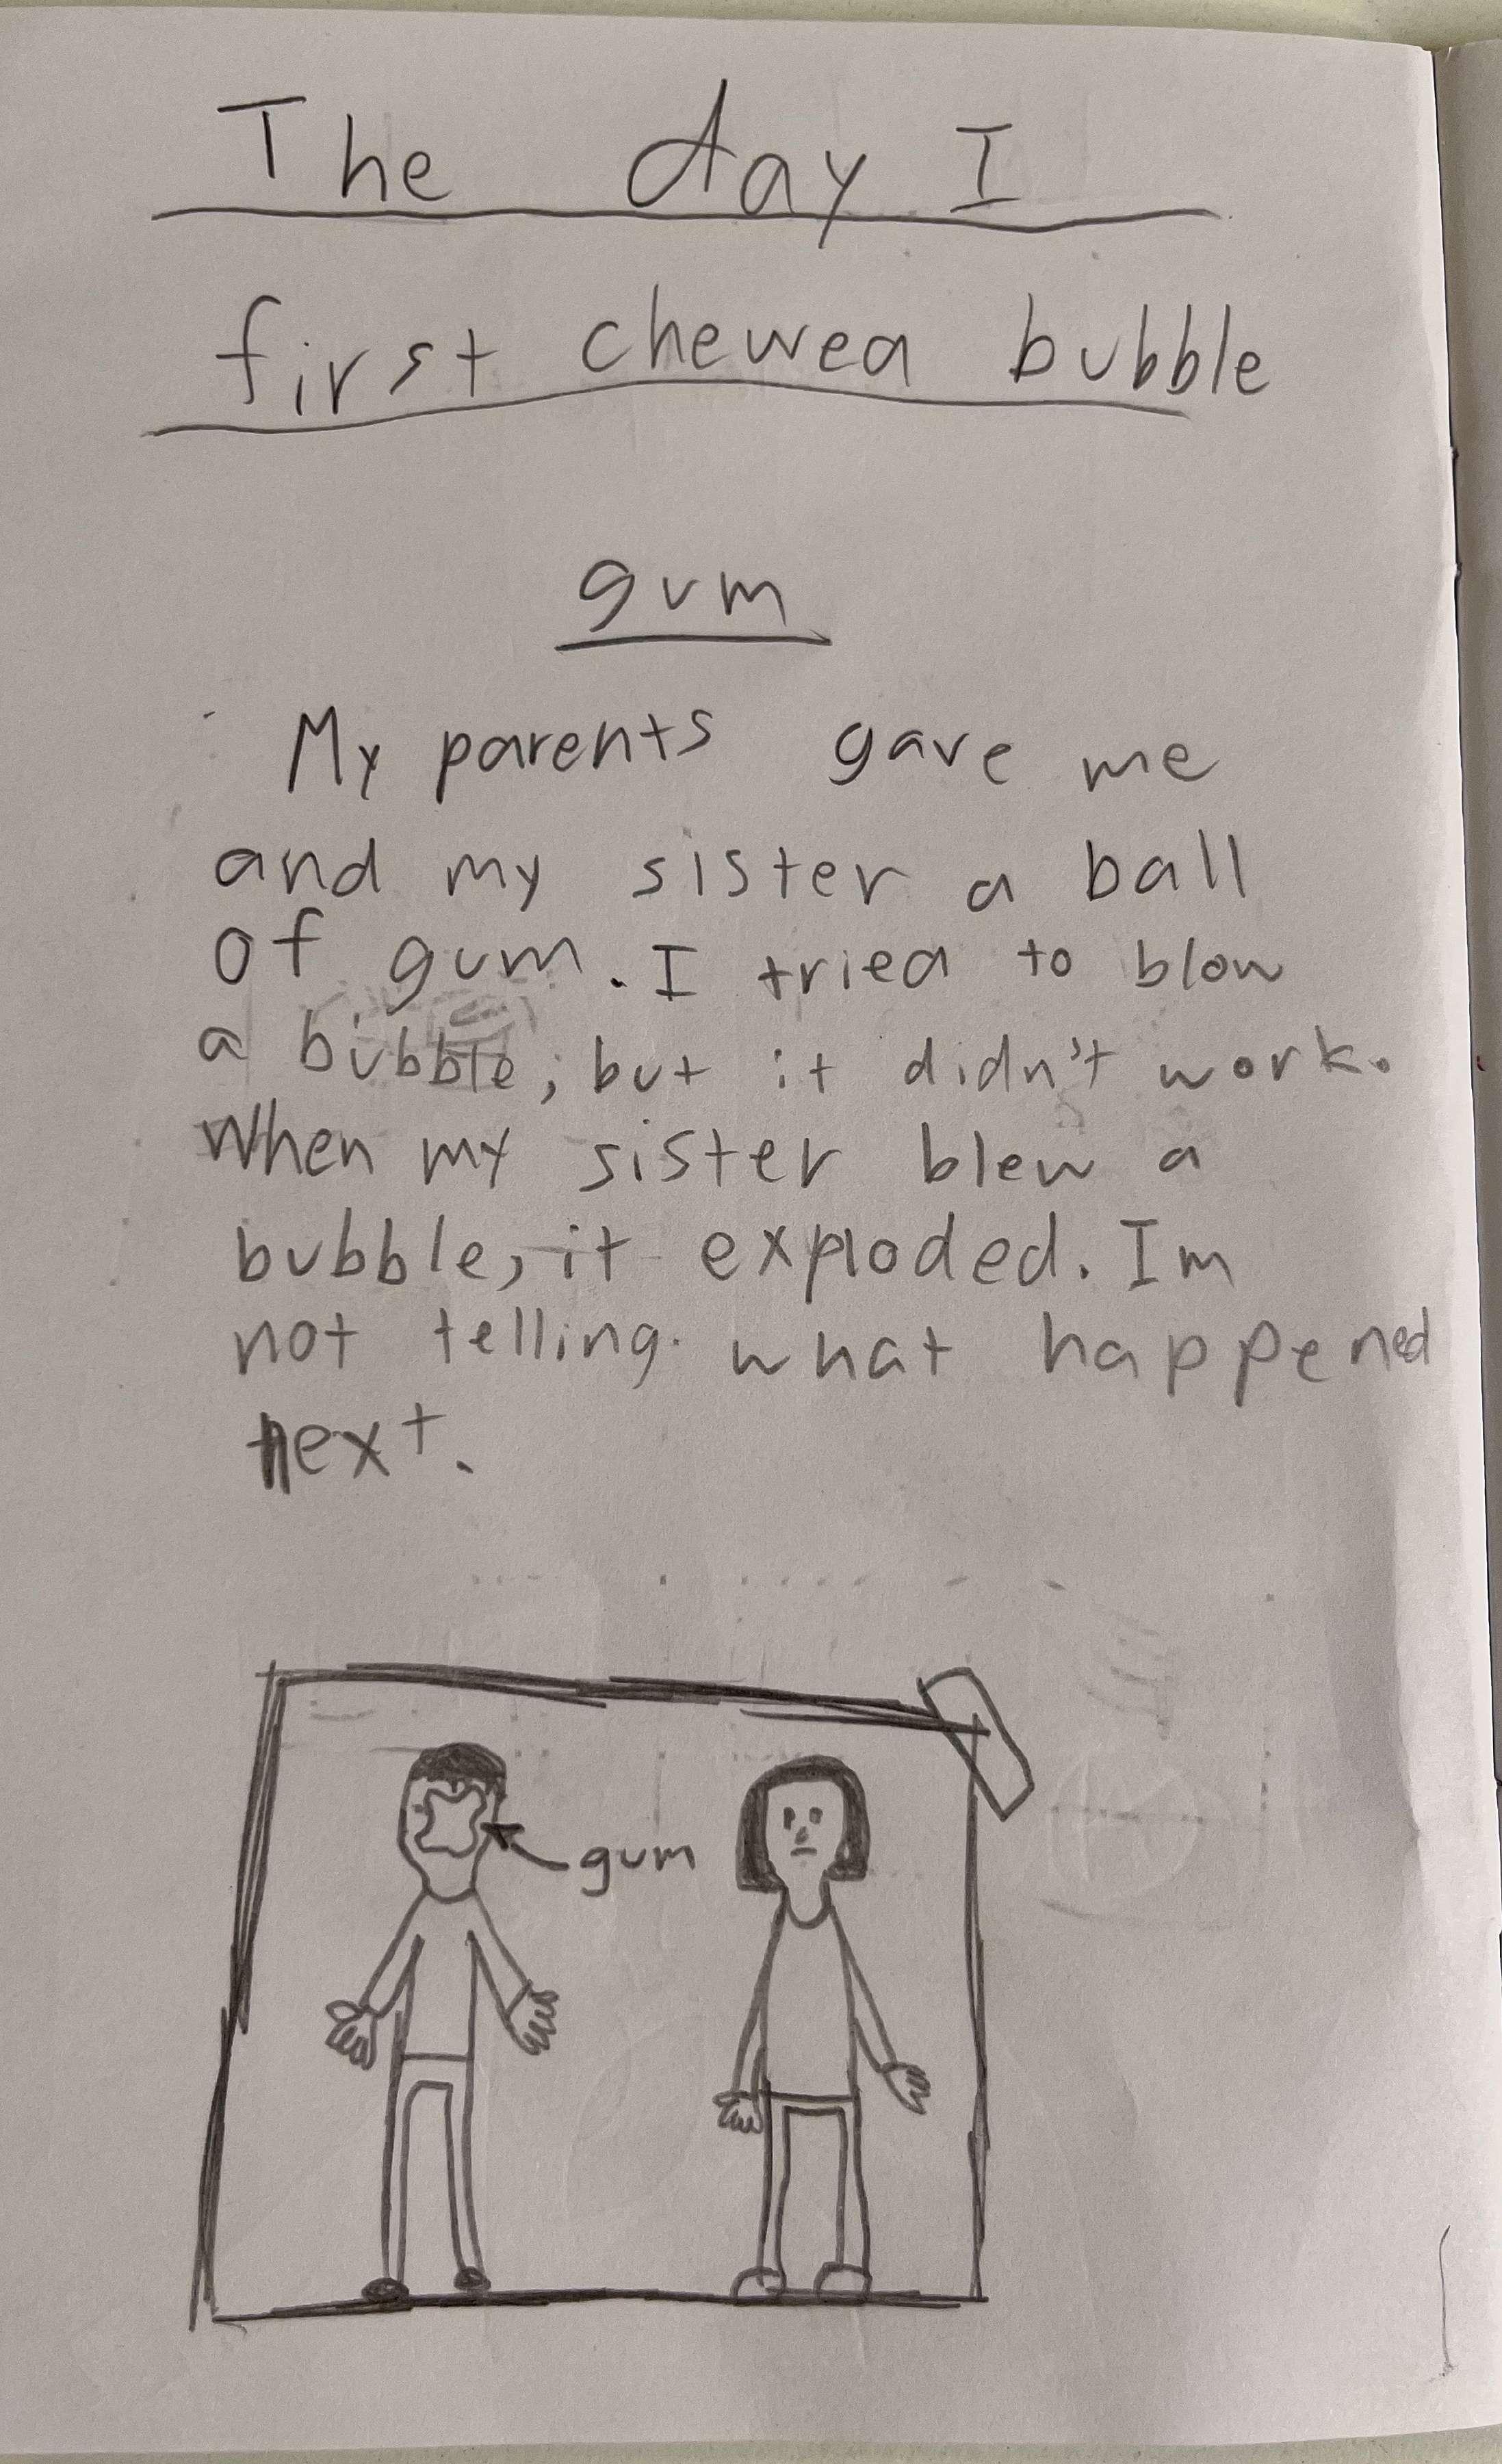 The day I
first chewed bubble
gum
My parents gave me
and my sister a ball
of gum. I tried to blow
a bubble, but it didn't work.
When my sister blew a
bubble, it exploded. Im
not telling what happened
next.
gum